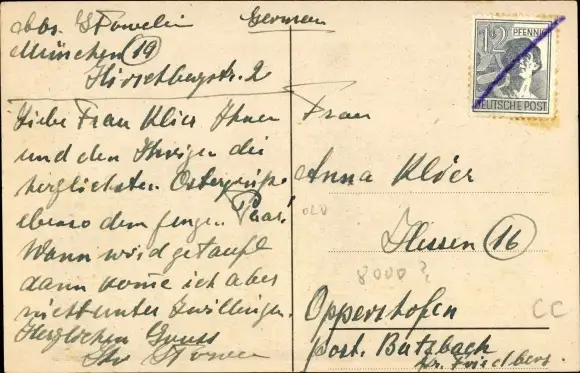 Abs. 
München (19)
Hirschbergstr. 2
German
12 PFENNIG
DEUTSCHE POST
Liebe Frau Klier Ihnen
und den Ihrigen die
herzlichsten Ostergrüße
ebenso dem jungen Paar!
Wann wird getauft
dann kome ich aber
nicht unter Zwillingen.
Herzlichen Gruss
Ihr
Frau
Anna Klier
OLD
Hessen (16)
8000 ?
Oppershofen
CC
post. Butzbach
Kr. Friedberg.